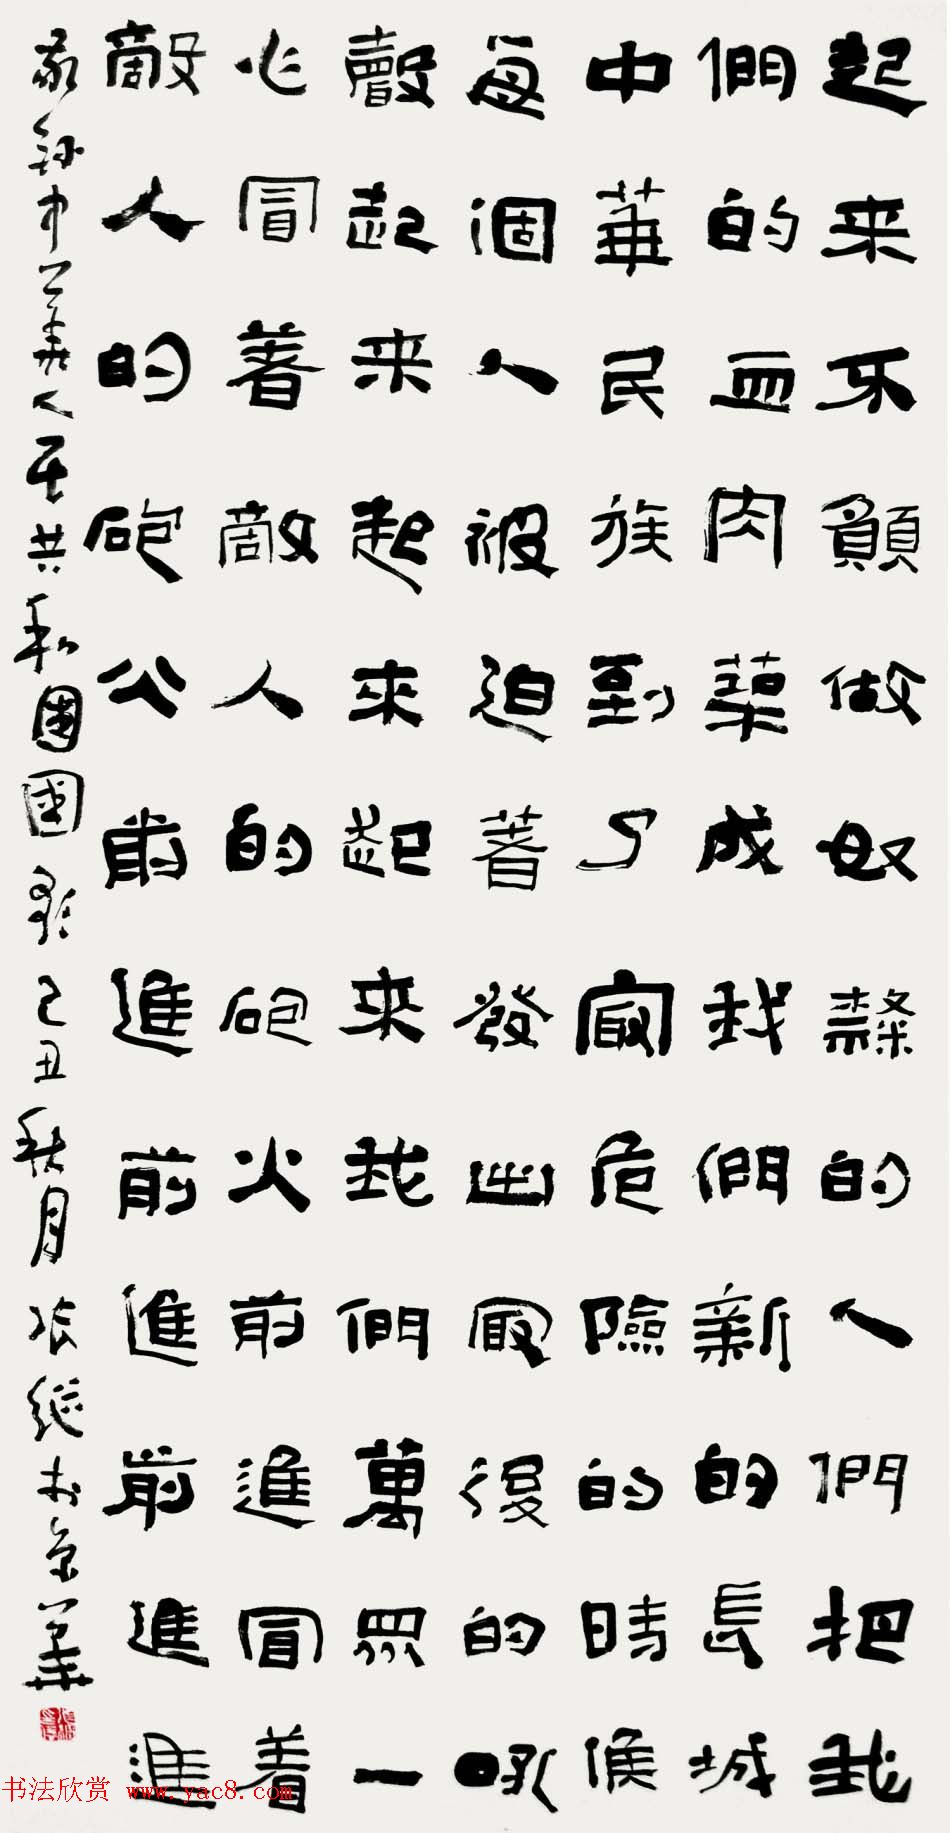 起来不願做奴隸的人們把我
們的血肉築成我們新的長城
中華民族到了最危險的時候
每個人被迫著發出最後的吼
聲起来起來起来我們萬眾一
心冒著敵人的砲火前進冒着
敵人的砲火前進前進前進進
敬錄中華人民共和國國歌己丑秋月張继於京華
书法欣赏 www.yac8.com